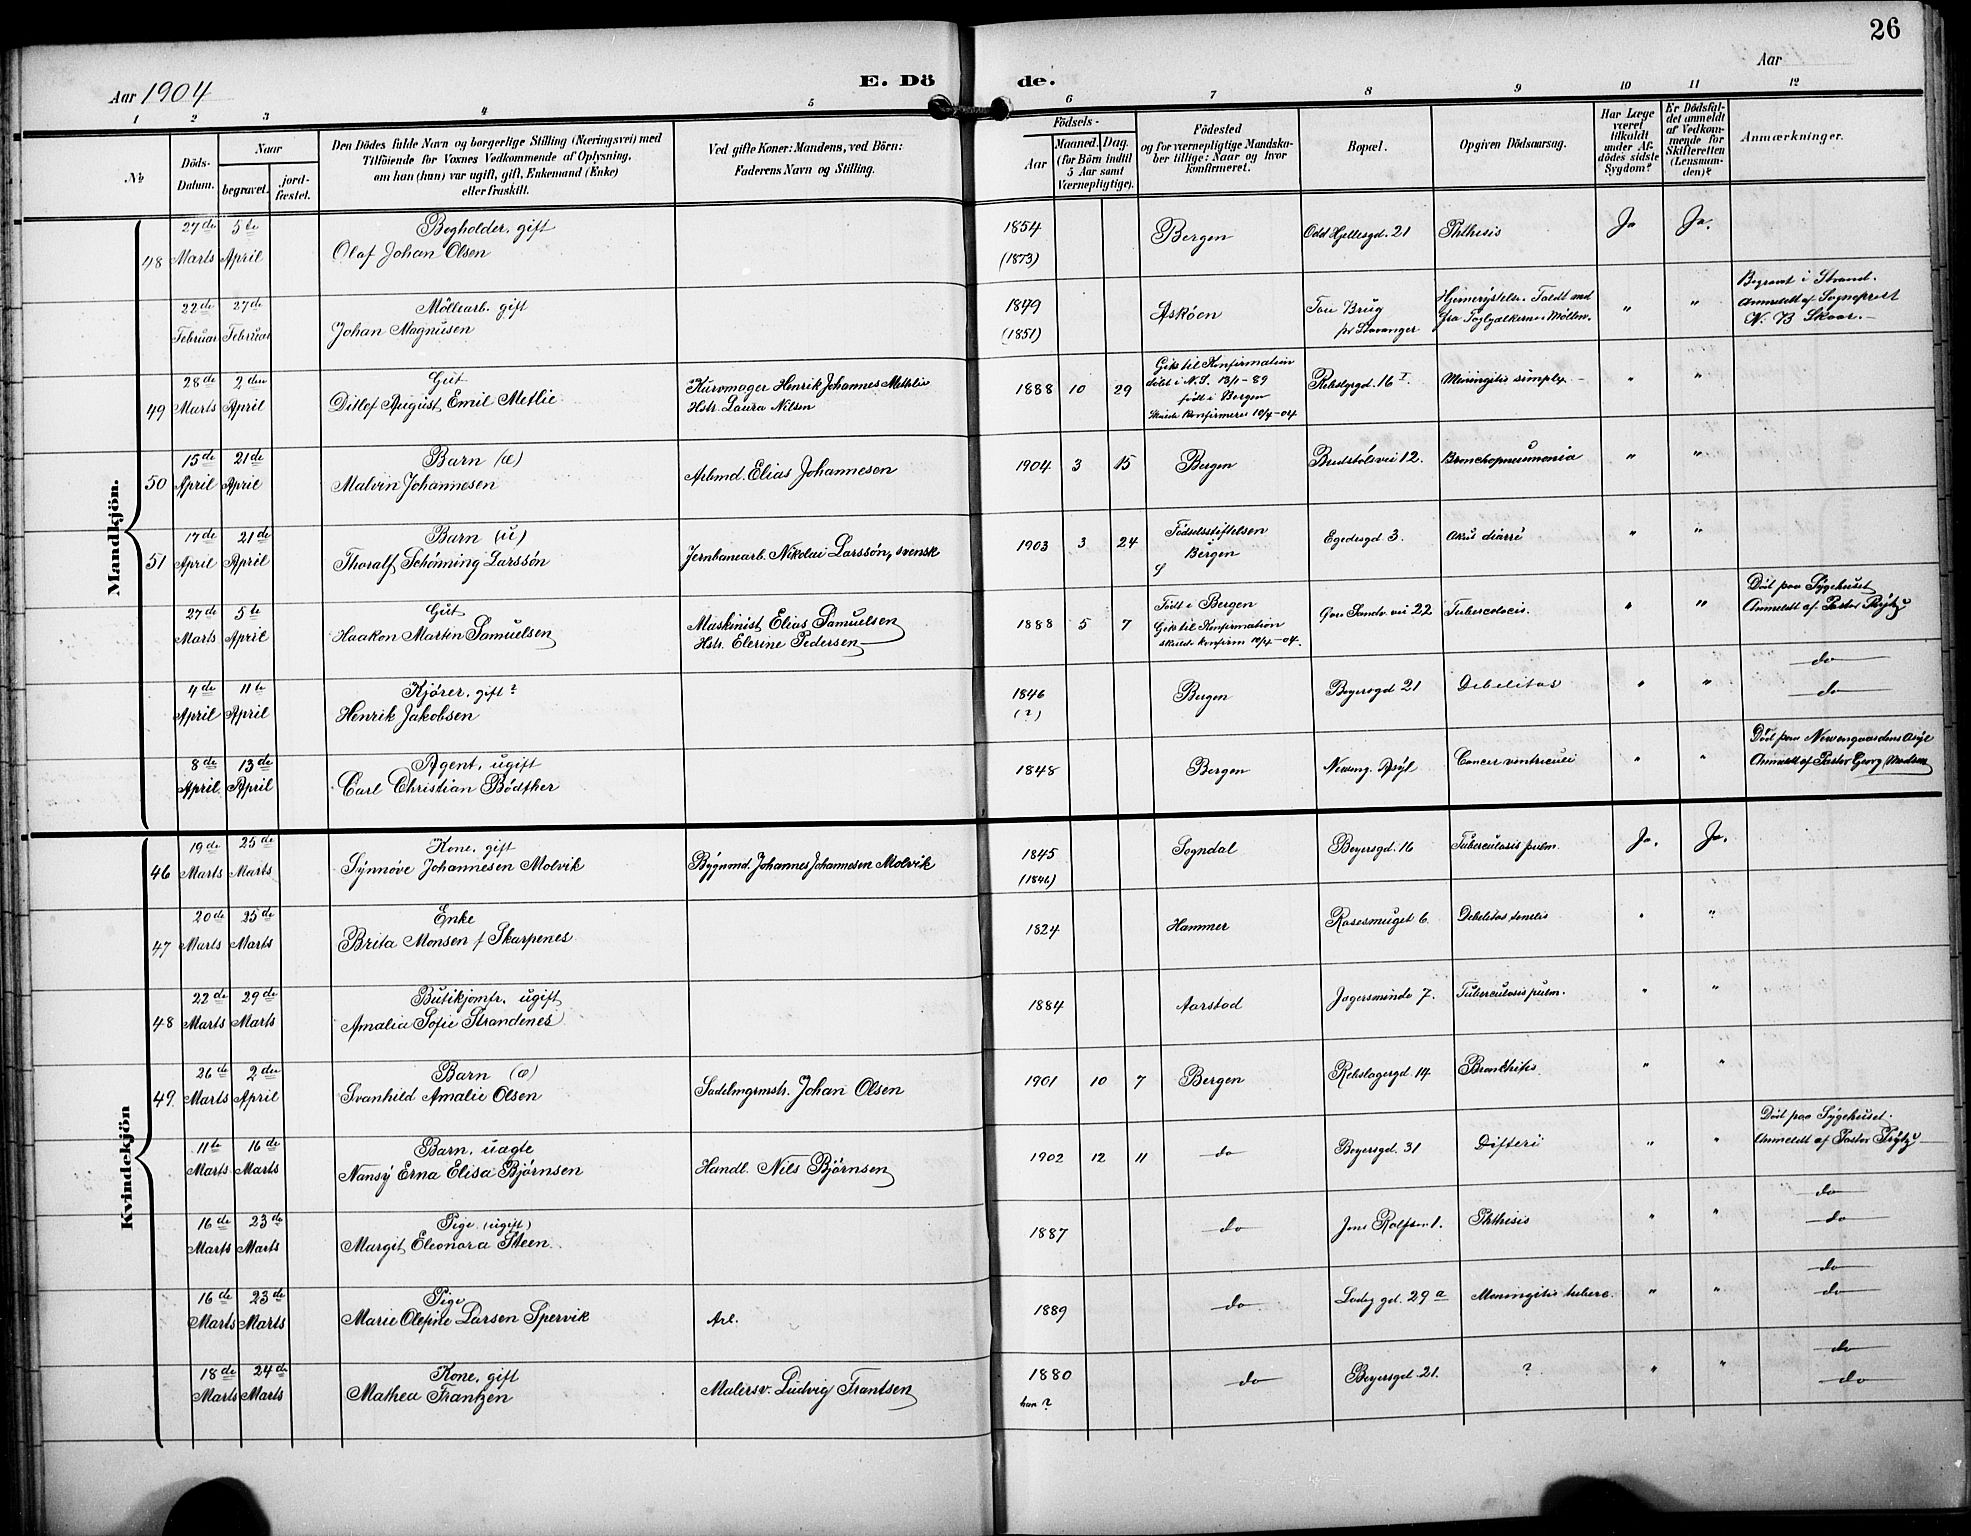 26
Aar 1904
E. Dö de.
Aar
1 2 3 4 5 6 7 8 9 10 11 12
№
Döds-Datum.
Naar
begravet.
jord-fæstet.
Den Dödes fulde Navn og borgerlige Stilling (Næringsvei) med
Tilföiende for Voxnes Vedkommende af Oplysning,
om han (hun) var ugift, gift, Enkemand (Enke)
eller fraskilt.
Ved gifte Koner: Mandens, ved Börn:
Faderens Navn og Stilling.
Födsels-
Aar
Maaned. Dag.
(for Börn indtil
5 Aar samt
Værnepligtige).
Födested
og for værnepligtige Mandska-
ber tillige: Naar og hvor
konfirmeret.
Bopæl.
Opgiven Dödsaarsag.
Har Læge
været
tilkaldt
under Af-
dödes sidste
Sygdom?
Er Dödsfal-
det anmeldt
af Vedkom-
mende for
Skifteretten
(Lensman-
den)?
Anmærkninger.
Mandkjön.
48 27de Marts 5te April Bogholder, gift
Olaf Johan Olsen 1854 (1873) Bergen Odd Hjeltesgd. 21 Phthisis Ja Ja.
22de Februar 27de Februar Möllearb. gift
Johan Magnusen 1849 (1851) Askøen Tou Brug pr Stavanger Hjernerystelse. Faldt ned fra " " Begravet i Strand.
Anmeldt af Sogneprest
N. B Skaar.
49 28de Marts 2den April Gut
Ditlef August Emil Metlie Kurvmager Henrik Johannes Methlie
Hstr. Laura Nilsen 1888 10 29 Gik til Konfirmation
döbt i N.S. 13/1-89
født i Bergen
Skulde konfirmeres 10/4-04 16 I. Meningitis simplex " "
50 15de April 21de April Barn (æ)
Malvin Johannesen Arbmd. Elias Johannesen 1904 3 15 Bergen 12. Bronchopneumonia " "
51 17de April 21de April Barn (u)
Thoralf Schønning Larssøn Jernbanearb. Nikolai Larssøn, svensk 1903 3 24 Fødselsstiftelsen
Bergen Egedesgd 3. " "
27de Marts 5te April Gut
Haakon Martin Samuelsen Maskinist Elias Samuelsen
Hstr. Elerine Pedersen 1888 5 7 Født i Bergen
Gik til Konfirmation
skulde konfirm 10/4-04. 22 " " Död paa Sygehuset
Anmeldt af Pastor
do
4de April 11te April Kjører, gift?
Henrik Jakobsen 1846 (?) Bergen Beyersgd 21 Debelitas " " do
8de April 13de April Agent, ugift
Carl Christian Bödtker 1848 Bergen Neveng. Asyl Cancer ventriculi " " Död paa Nevengaardens Asyl
Anmeldt af Pastor Georg Madsen
Kvindekjön
46 19de Marts 25de Marts Kone, gift
Synnøve Johannesen Molvik Bygnmd. Johannes Johannesen Molvik 1845 (1846) Sogndal Beyersgd. 16 Tuberculosis pulm. Ja. Ja.
47 20de Marts 25de Marts Enke
Brita Monsen f Skarpenes 1824 Hammer Rosesmuget 6. Debelitas senilis " "
48 22de Marts 29de Marts Butikjomfr. ugift
Amalia Sofie Strandenes 1884 Aarstad Jagersminde 7. Tuberculosis pulm. " "
49. 26de Marts 2den April Barn (æ)
Svanhild Amalie Olsen Sadelmgrmstr. Johan Olsen 1901 10 7 Bergen Rebslagergd. 14 Bronkhitis. " "
11te Marts 16de Marts Barn, uægte
Nansy Erna Elisa Bjørnsen Handl. Nils Bjørnsen 1902 12 11 do Beyersgd. 31 Difteri " " Död paa Sygehuset.
Anmeldt af Pastor
16de Marts 23de Marts Pige (ugift)
Margit Eleonora Steen. 1887 do 1. Phthisis " " do
do
16de Marts 23de Marts Pige
Marie Olefine Larsen Spervik Arb. 1889 do 29a Meningitis tuberc. " " do
do
18de Marts 24de Marts Kone, gift
Mathea Frantzen Malersv. Ludvig Frantsen 1880 do Beyersgd. 21. ? " " do
do